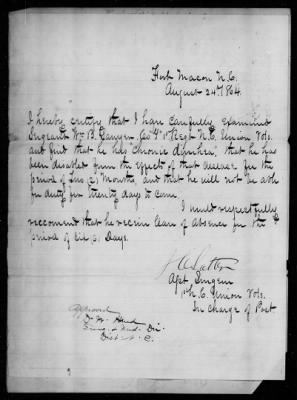 Fort Macon N.C.
August 24th 1864.
I hereby certify that I have carefully examined
Sergeant Wm B. Co "F" 1st Regt N.C. Union Vols.
and find that he has Chronic diarrhea, that he has
been disabled from the effects of that disease for the
period of two (2) Months, and that he will not be able
for duty for twenty days to come.
I would respectfully
recommend that he receive leave of absence for the
period of Days.
Asst Surgeon
1st N.C. Union Vols.
In Charge of Post
Approved
Surg & Med Dir.
Dist N.C.